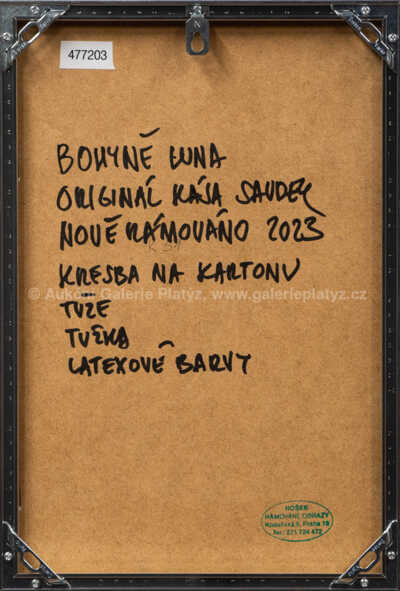 477203
BOHYNĚ LUNA
ORIGINÁL KÁJA SAUDEK
NOVĚ RÁMOVÁNO 2023
KRESBA NA KARTONU
© Aukční Galerie Platýz, www.galerieplatyz.cz
TUŽE
TUŽKA
LATEXOVÉ BARVY
HOŠEK
RÁMOVÁNÍ, OBRAZY
Praha 10
Tel.: 271 724 472